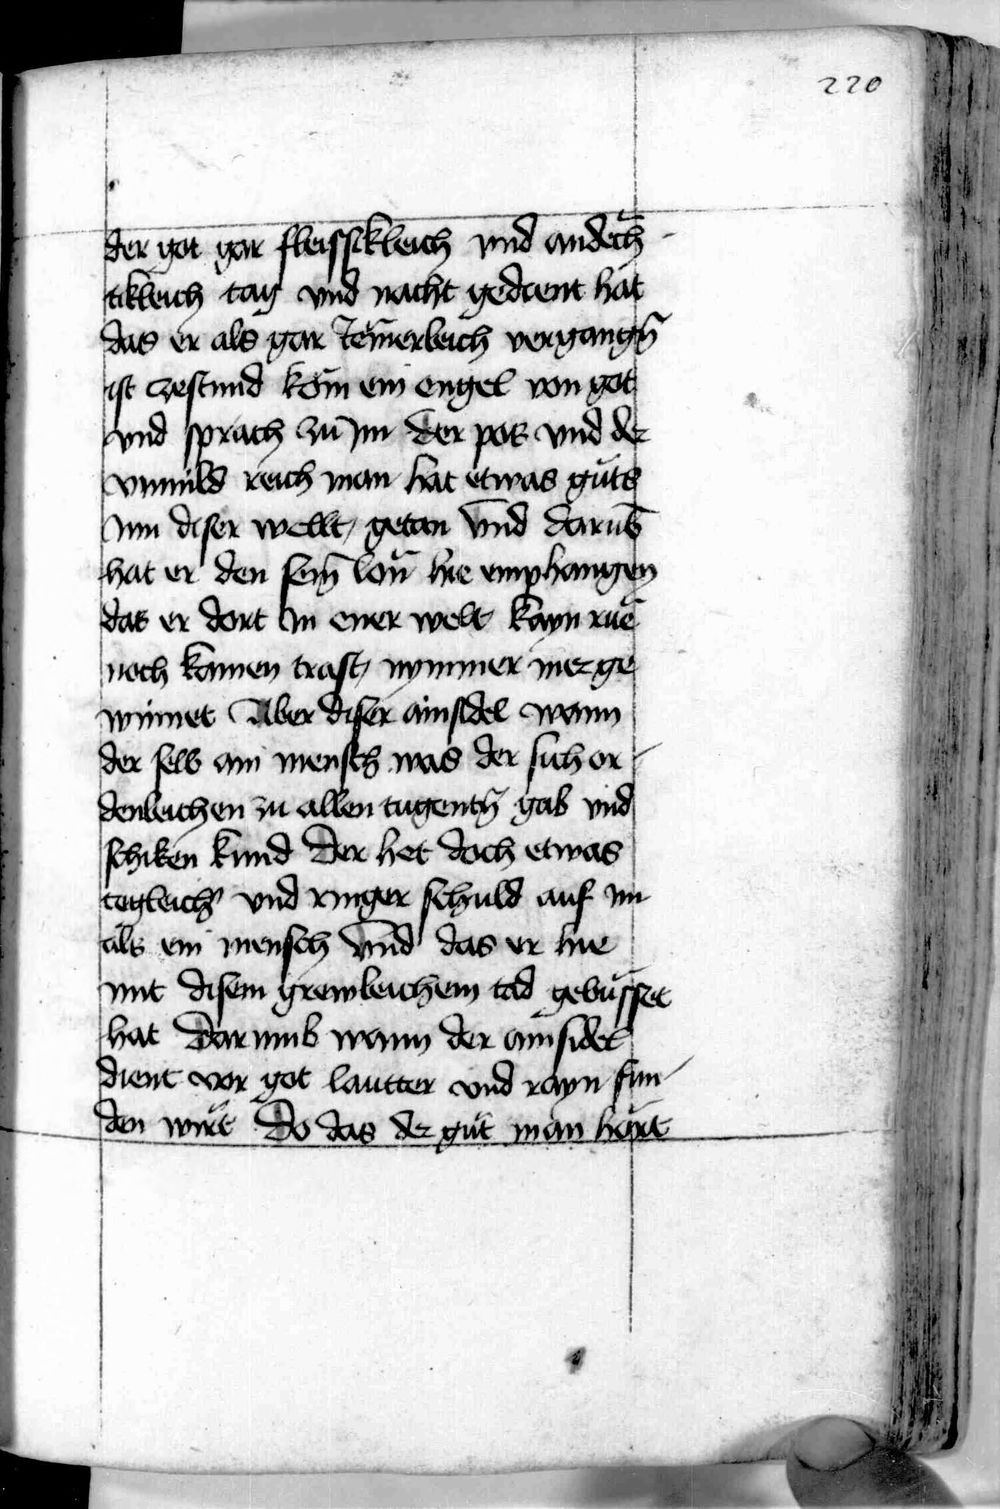 220
der got gar fleissikleich vnd andech̄
tikleich tag vnd nacht gedient hat
das er als gar Jemerleich vergangn̄
ist zestund kom ein engel von got
vnd sprach zu im der pos vnd der
vnmild reich man hat etwas guts
Inn diser wellt getan vnd darūb
hat er den sein lon hie emphangen
das er dort in ener welt kayn rue
noch kainen trast nymmer mer ge
winnet Aber diser ainsidel wann
der selb ain mensch was der sich or
denleichen zu allen tugentn̄ gab vnd
schiken kund Der het doch etwas
tegleich' vnd ringer schuld auf im
als ein mensch vnd das er hie
mit disem grewleichem tod gebüsset
hat Dar vmb wann der ainsidel
dient vor got lautter vnd rayn fun
den wirt Do das der gut man hort